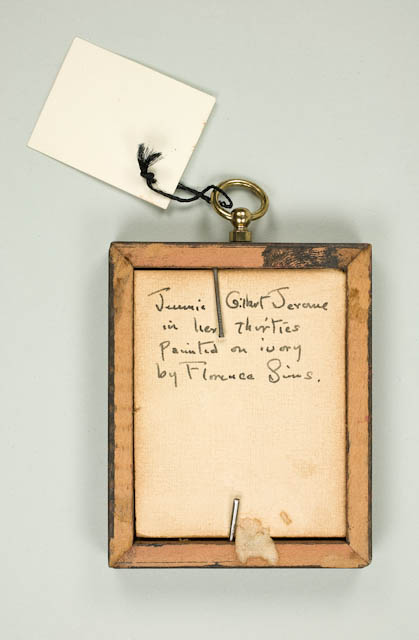 Jennie Gilbert Jerome
in her thirties
Painted on ivory
by Florence Sims.